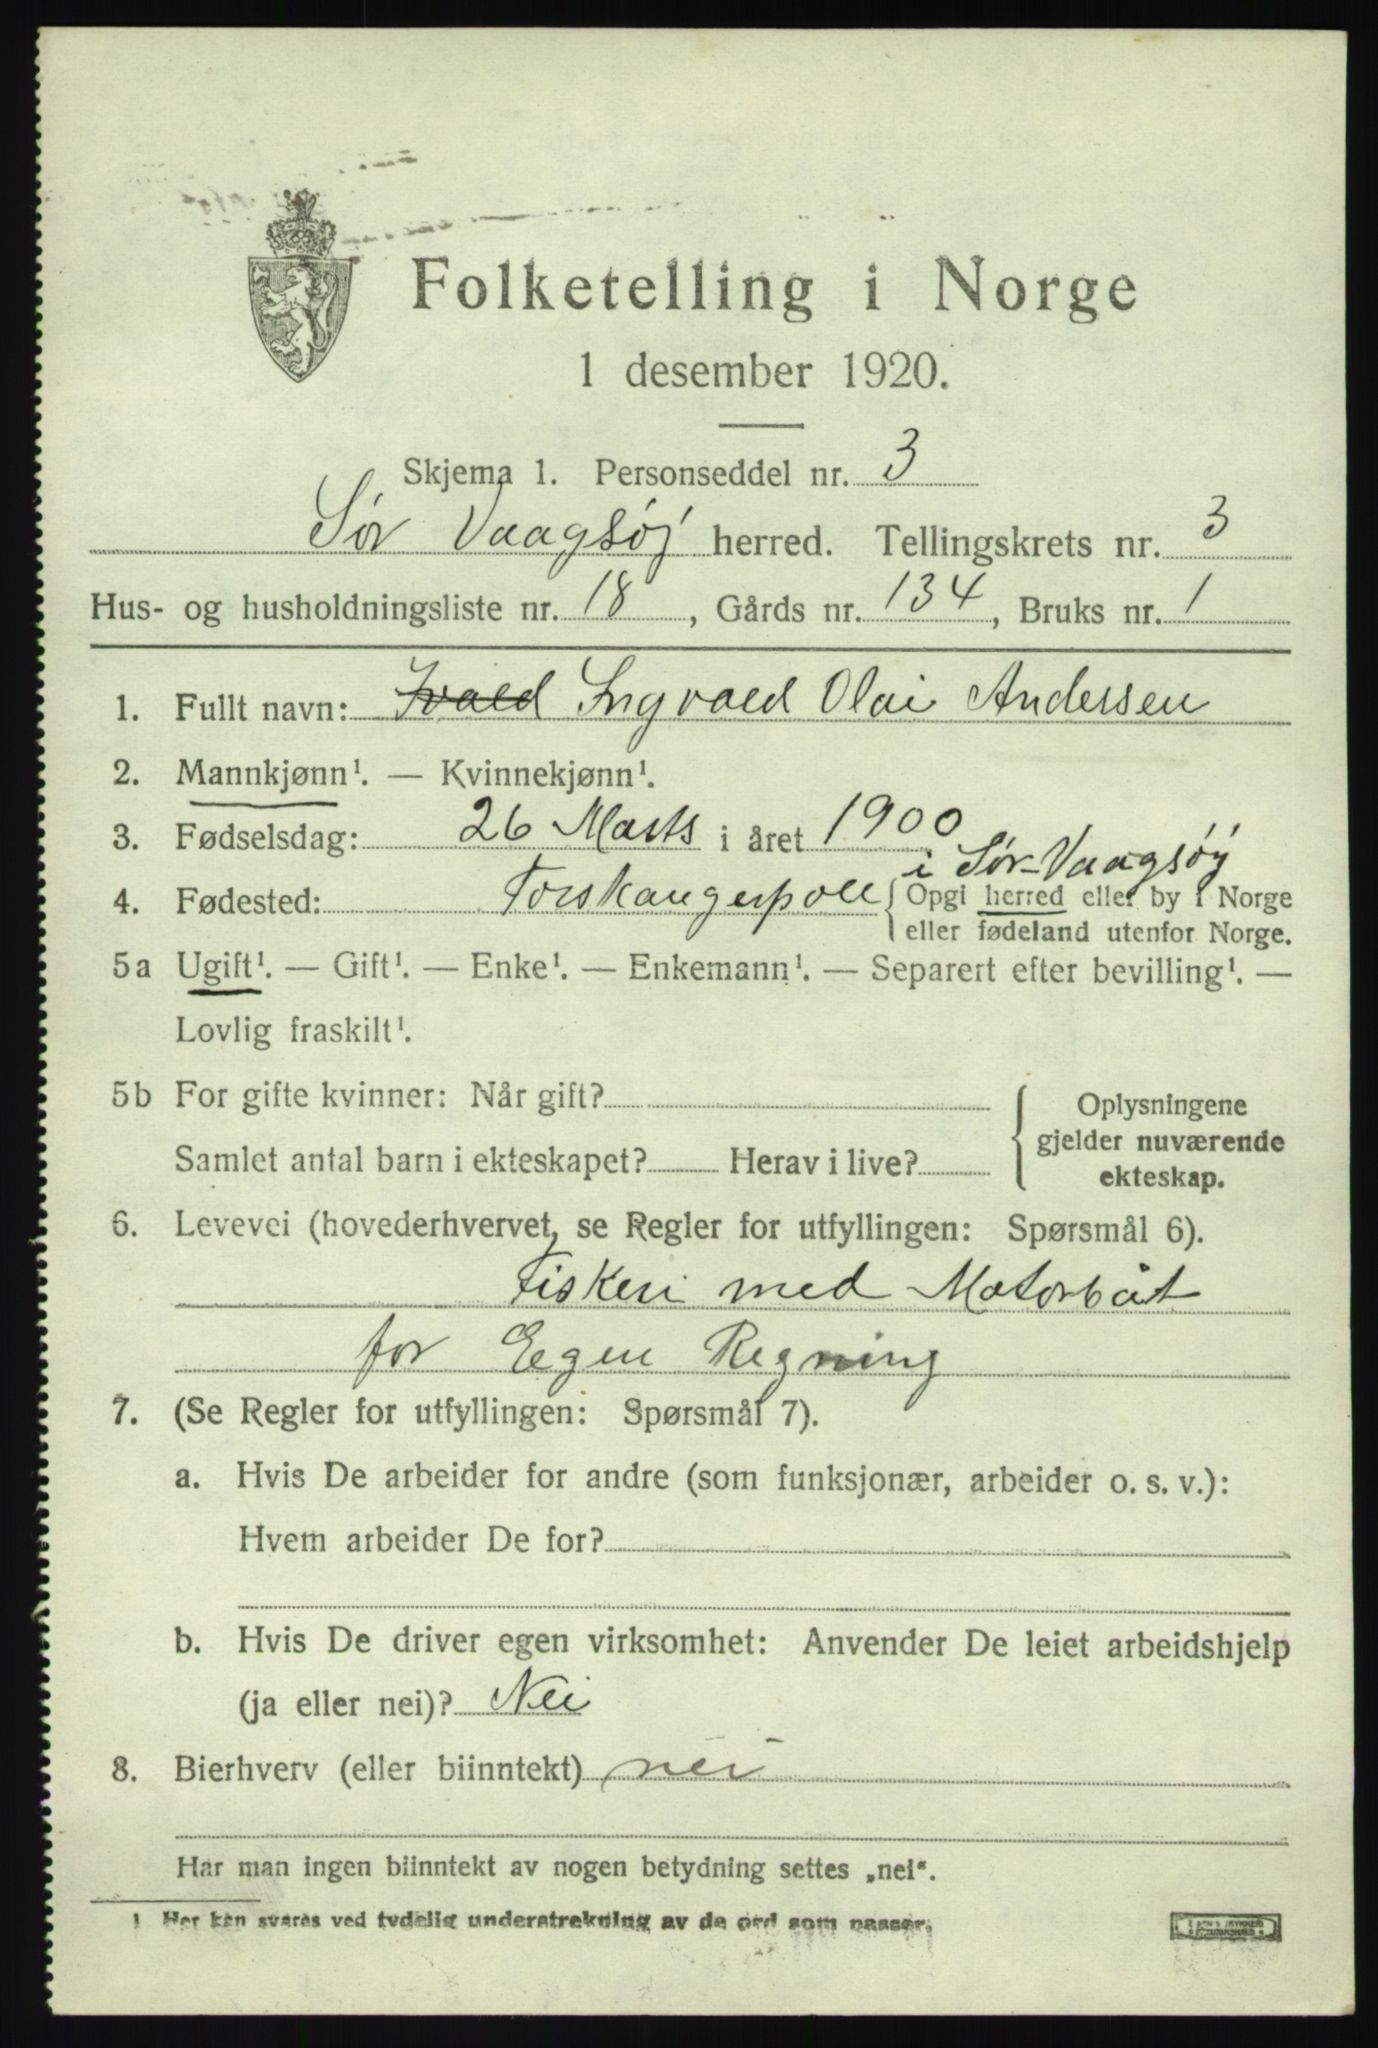 Folketelling i Norge
1 desember 1920.
Skjema 1. Personseddel nr. 3
Sør Vaagsøy herred. Tellingskrets nr. 3
Hus- og husholdningsliste nr. 18, Gårds nr. 134, Bruks nr. 1
1. Fullt navn: Ivald Ingvald Olai Andersen
2. Mannkjønn¹. — Kvinnekjønn¹.
3. Fødselsdag: 26 Marts i året 1900
i Sør-Vaagsøy
4. Fødested: Torskangerpoll { Opgi herred eller by i Norge
eller fødeland utenfor Norge.
5a Ugift¹. — Gift¹. — Enke¹. — Enkemann¹. — Separert efter bevilling¹. —
Lovlig fraskilt¹.
5b For gifte kvinner: Når gift?
Samlet antal barn i ekteskapet? Herav i live?
{ Oplysningene
gjelder nuværende
ekteskap.
6. Levevei (hovederhvervet, se Regler for utfyllingen: Spørsmål 6).
Fiskeri med Motorbåt
for Egen Regning
7. (Se Regler for utfyllingen: Spørsmål 7).
a. Hvis De arbeider for andre (som funksjonær, arbeider o. s. v.):
Hvem arbeider De for?
b. Hvis De driver egen virksomhet: Anvender De leiet arbeidshjelp
(ja eller nei)? Nei
8. Bierhverv (eller biinntekt) nei
Har man ingen biinntekt av nogen betydning settes „nei“.
1 Her kan svares ved tydelig understrekning av de ord som passer.